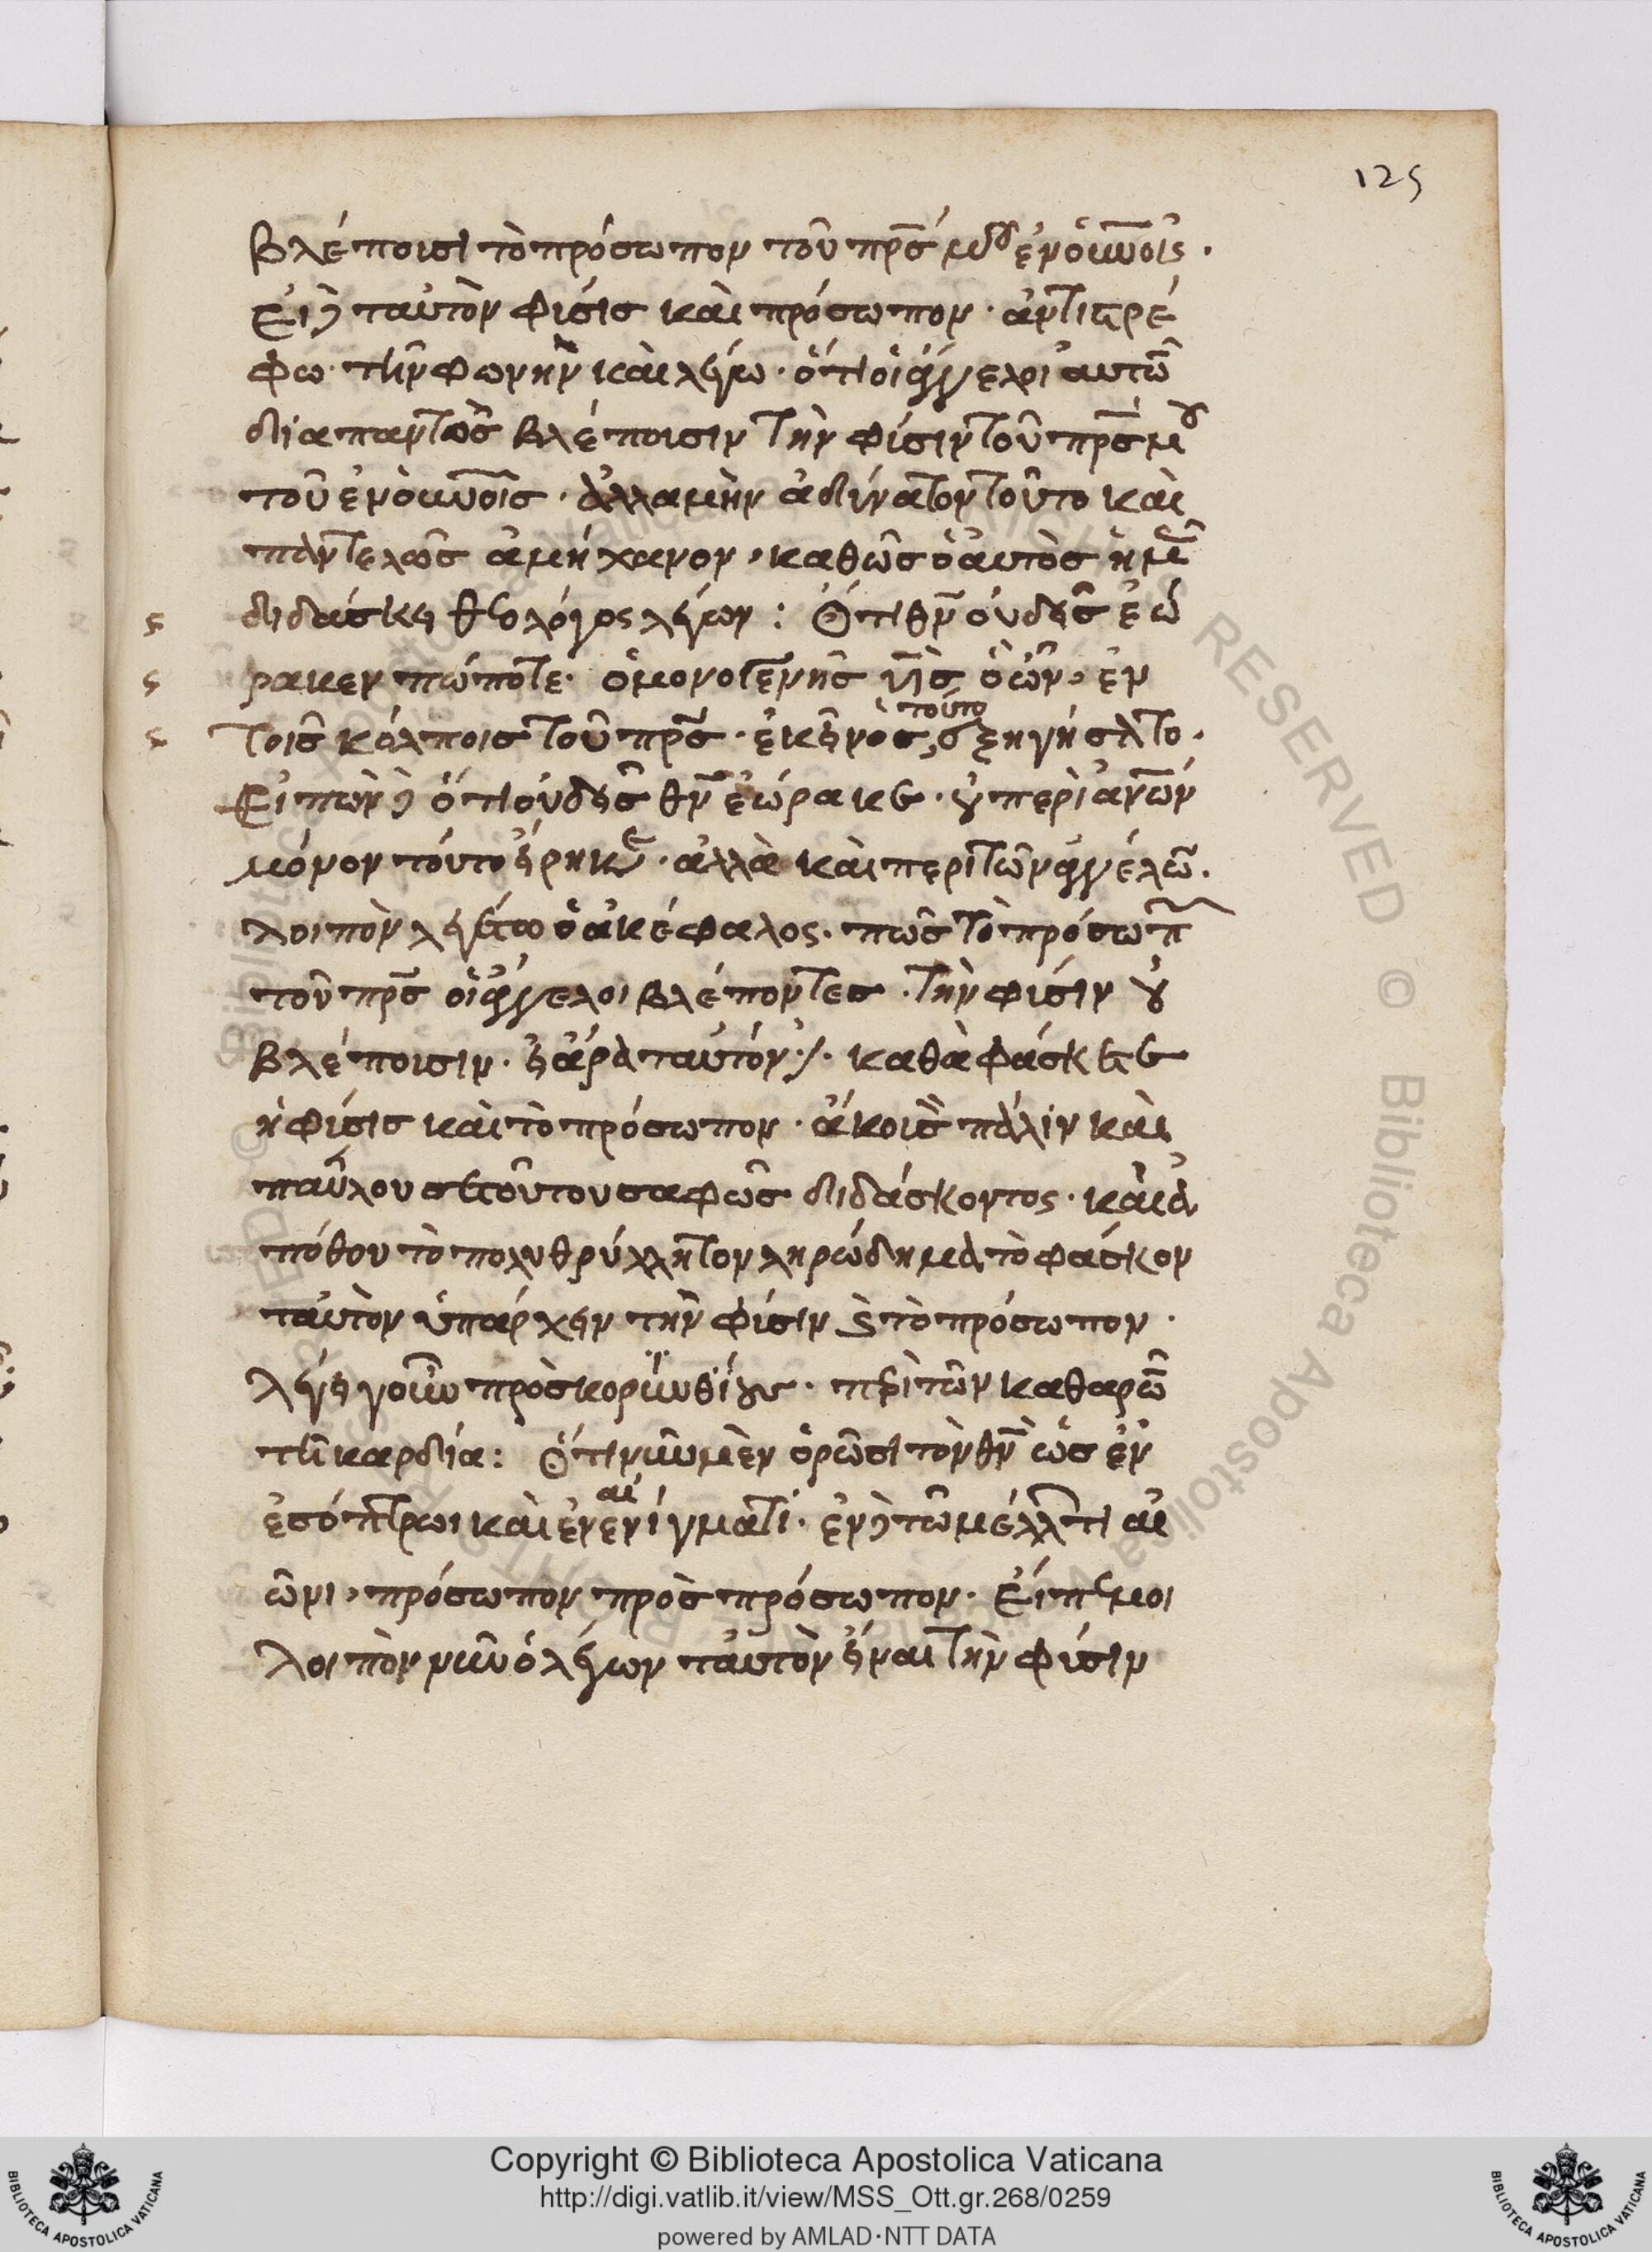 125
βλέποισι τὸ πρόσωπον τοῦ πρσ μου ἐν οὐνοις·
Ἐι δὲ ταυτὸν φίσις καὶ πρόσωπον· ἀντιστρέ
φω τὴν φωνὴν καὶ λέγω· ὅτι οἱ ἄγγελοι αυτῶν
διαπαντὸς βλέποισιν τὴν φίσιν τοῦ πρσ μου
τοῦ ἐν οὐνοις· ἀλλαμὴν ἀδίνατον τοῦτο καὶ
παντελῶς ἀμήχανον, καθὼς ὁ αυτὸς ἡμῖν
διδάσκει θεολόγος λέγων: Ὅτι θν ουδεὶς ἑώ
ρακεν πώποτε· ὁ μονογενὴς υς ὁ ὢν, ἐν
τοῖς κόλποις τοῦ πρσ· ἐκεῖνος τοῦτο ἐξηγήσατο·
Εἰπὼν δὲ ὅτι ουδεὶς θν ἑώρακε· οὐ περὶ ανων
μόνον τοῦτο εἴρηκεν· ἀλλὰ καὶ περὶ τῶν ἀγγέλων·
λοιπὸν λεγέτω ὁ ἀκέφαλος· πῶς τὸ πρόσωπον
τοῦ πρσ οἱ ἄγγελοι βλέποντες· τὴν φίσιν οὐ
βλέποισιν· εἰ ἄρα ταυτόν ἐστι· καθὰ φάσκετε
ἡ φίσις καὶ τὸ πρόσωπον· ἄκοισον πάλιν καὶ
παύλου σε τοῦτον σαφῶς διδάσκοντος· καὶ ἀ
πόθου τὸ πολυθρύλλητον ληρώδημα, τὸ φάσκον
ταυτὸν ὑπάρχειν τὴν φίσιν καὶ τὸ πρόσωπον·
λέγει γοῦν πρὸς κορϋνθίους· περὶ τῶν καθαρῶν
τῆ καρδία: Ὅτι νῦν μὲν ὁρῶσι τὸν θν ὡς ἐν
ἐσόπτρωι καὶ ἐν αἰενίγματι· ἐν δὲ τῶ μέλλοντι αἰ
ῶνι, πρόσωπον πρὸς πρόσωπον· Εἰπέ μοι
λοιπὸν νῦν ὁ λέγων ταυτὸν εἶναι τὴν φύσιν
Copyright © Biblioteca Apostolica Vaticana
http://digi.vatlib.it/view/MSS_Ott.gr.268/0259
powered by AMLAD·NTT DATA
BIBLIOTECA APOSTOLICA VATICANA
BIBLIOTECA APOSTOLICA VATICANA